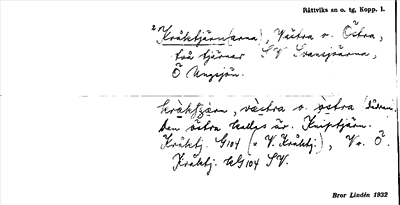 Rättviks sn o. tg, Kopp. l.
2 Kråktjärn(arna), Västra o. Östra,
två tjärnar SV Svansjöarna,
Ö Ungsjön.
kråktjärn, västra o. östra
den östra kallas är. Kniptjärn.
Kråktj. G104 (= V. Kråktj.), V o. Ö.
Kråktj. G104 SV.
Bror Lindén 1932